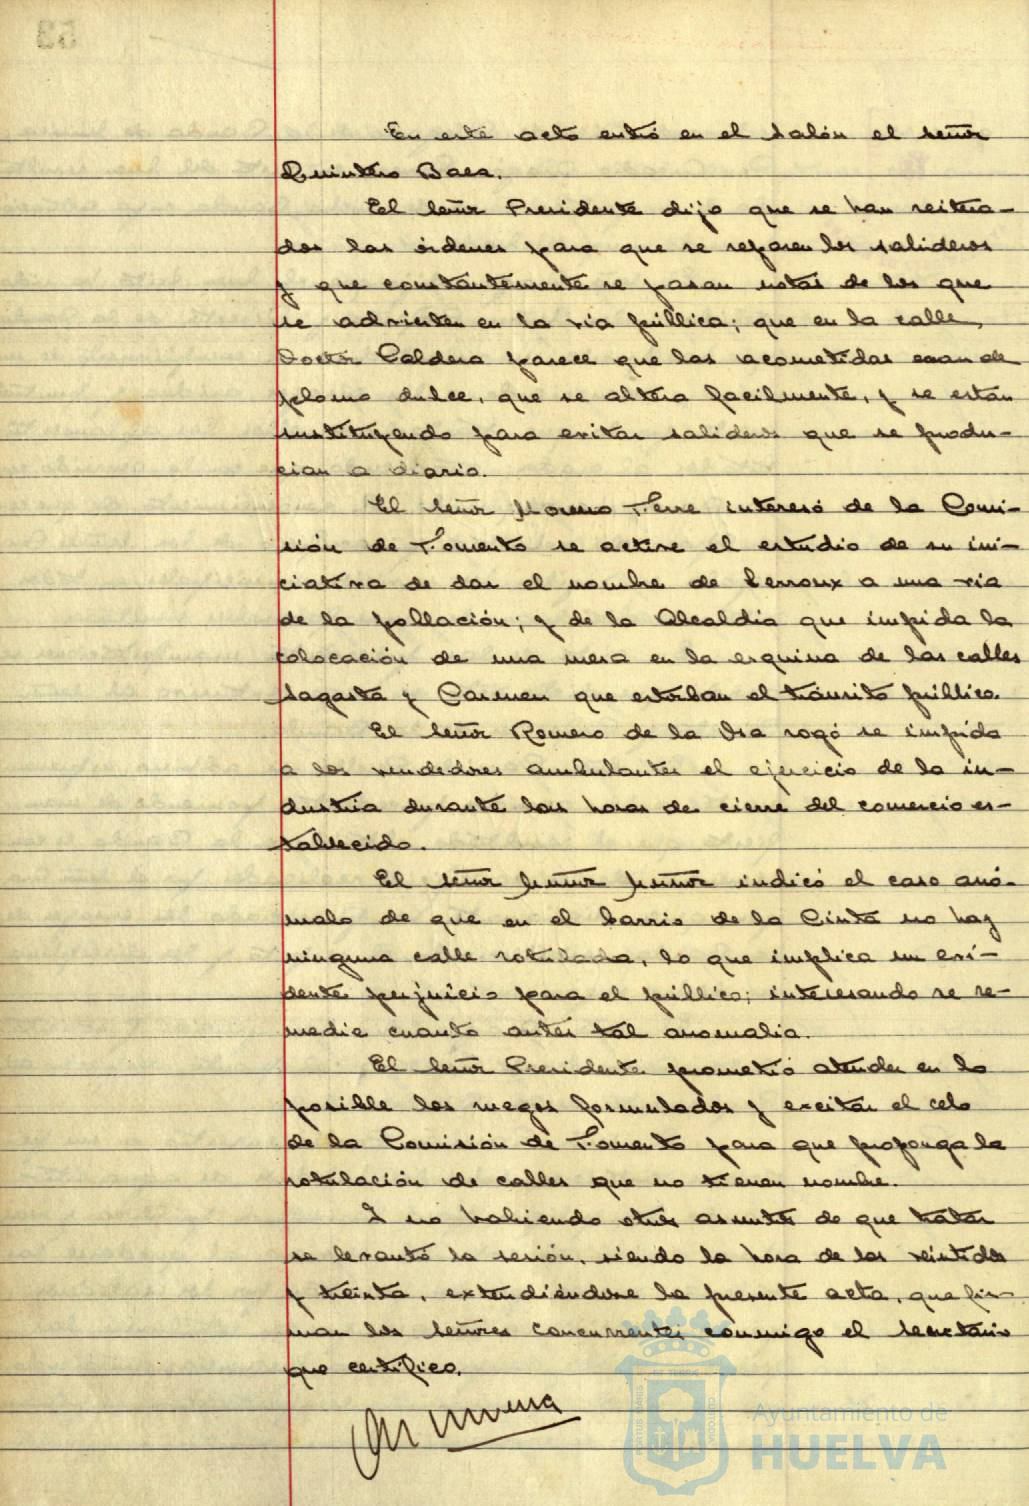 En este acto entró en el salón el señor
Quintero Baea.
El señor Presidente dijo que se han reitera-
dos las órdenes para que se reparen los salideros
y que constantemente se pasan notas de los que
se advierten en la vía pública; que en la calle
Doctor Caldera parece que las acometidas eran de
plomo dulce, que se altera facilmente, y se están
sustituyendo para evitar salideros que se produ-
cian a diario.
El señor Moreno Terre interesó de la Comi-
sión de Fomento se active el estudio de su ini-
ciativa de dar el nombre de Lerroux a una vía
de la población; y de la Alcaldía que impida la
colocación de una mesa en la esquina de las calles
Sagasta y Carmen que estorban el tránsito público.
El señor Romero de la Osa rogó se impida
a los vendedores ambulantes el ejercicio de la in-
dustria durante las horas de cierre del comercio es-
tablecido.
El señor indicó el caso anó-
malo de que en el barrio de la Cinta no hay
ninguna calle rotulada, lo que implica un evi-
dente perjuicio para el público; interesando se re-
medie cuanto antes tal anomalia.
El señor Presidente prometió atender en lo
posible los ruegos formulados y excitar el celo
de la Comisión de Fomento para que proponga la
rotulación de calles que no tienen nombre.
Y no habiendo otros asuntos de que tratar
se levantó la sesión, siendo la hora de las veintidos
y treinta, extendiéndose la presente acta, que fir-
man los señores concurrentes conmigo el Secretario
que certifico.
Ayuntamiento de
HUELVA